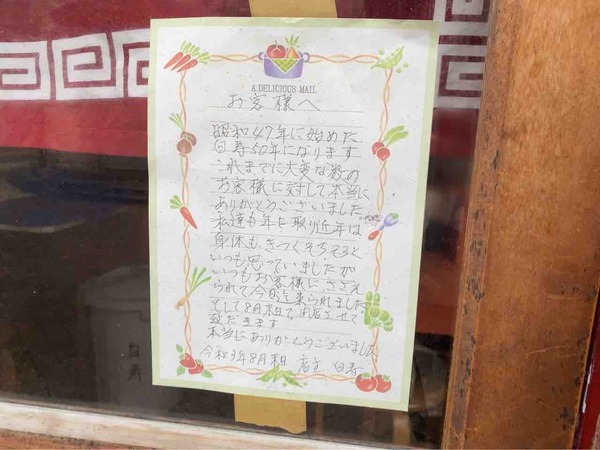 A DELICIOUS MAIL
お客様へ
昭和47年に始めた
白寿50年になります
これまでに大変な数の
お客様に対して本当に
ありがとうございました
私達も年を取り近年は
身体もきつくそろそろと
いつも思っていましたが
いつもお客様にささえ
られて今日迄来られました
そして8月末日で閉店させて
致だきます
本当にありがとうございました
令和3年8月末日 店主 白寿
白寿